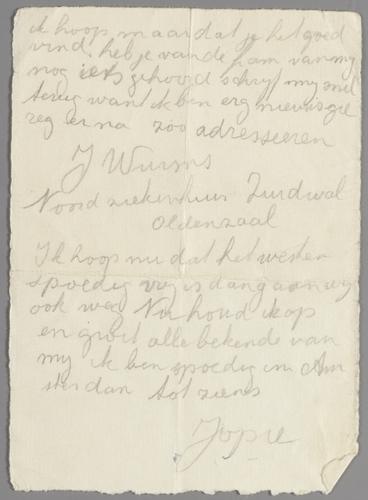 ik hoop maar dat je het goed
vind. heb je van de fam van my
nog iets gehoord schryf my snel
terug want ik ben erg nieuwsgie
reg erna zoo adresseeren
J Wurms
Noord ziekenhuis Zuidwal
Oldenzaal
Ik hoop nu dat het westen
spoedig vry is dan gaan wy
ook weg Nu houd ik op
en groet alle bekende van
my ik ben spoedig in Am
sterdan tot ziens
Jopie